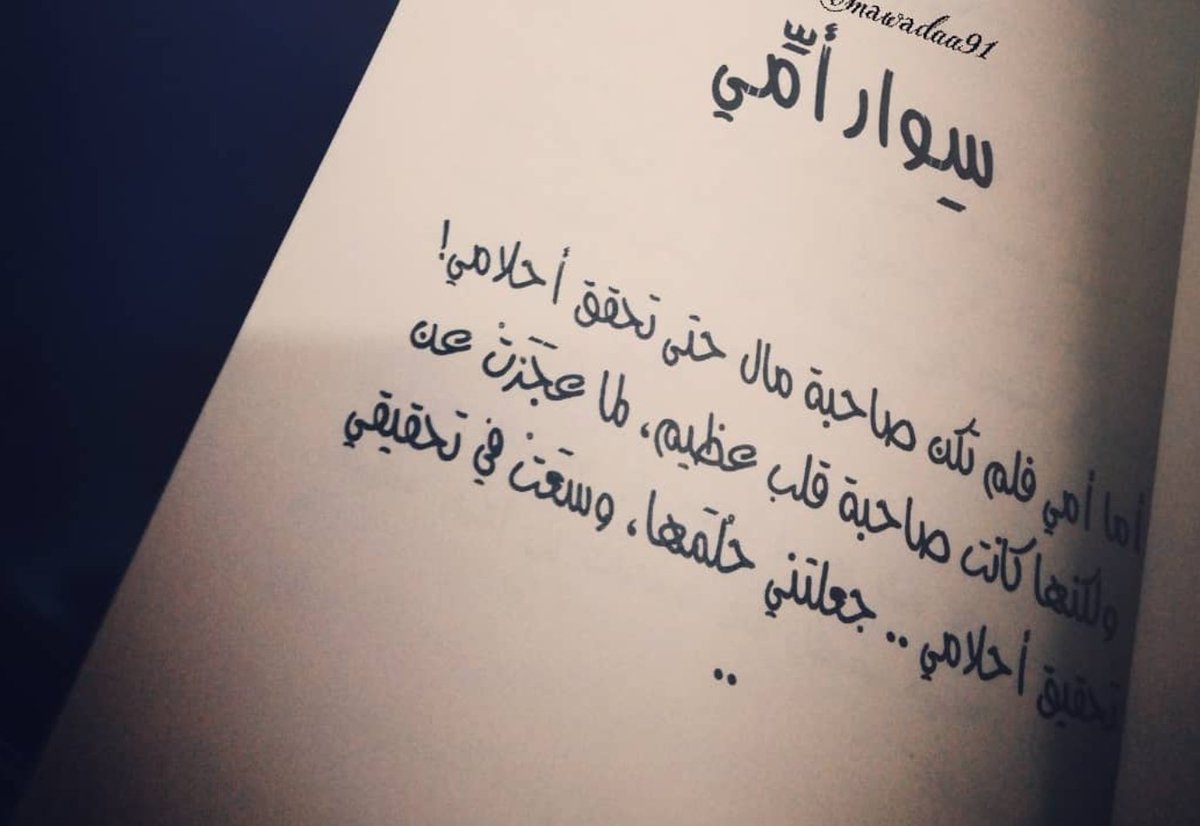 @mawadaa91
سِوار أمِّي
أما أمي فلم تكن صاحبة مال حتى تحقق أحلامي!
ولكنها كانت صاحبة قلب عظيم، لما عجَزَتْ عن
تحقيق أحلامي .. جعلتني حُلُمَها، وسعَتْ في تحقيقي
..